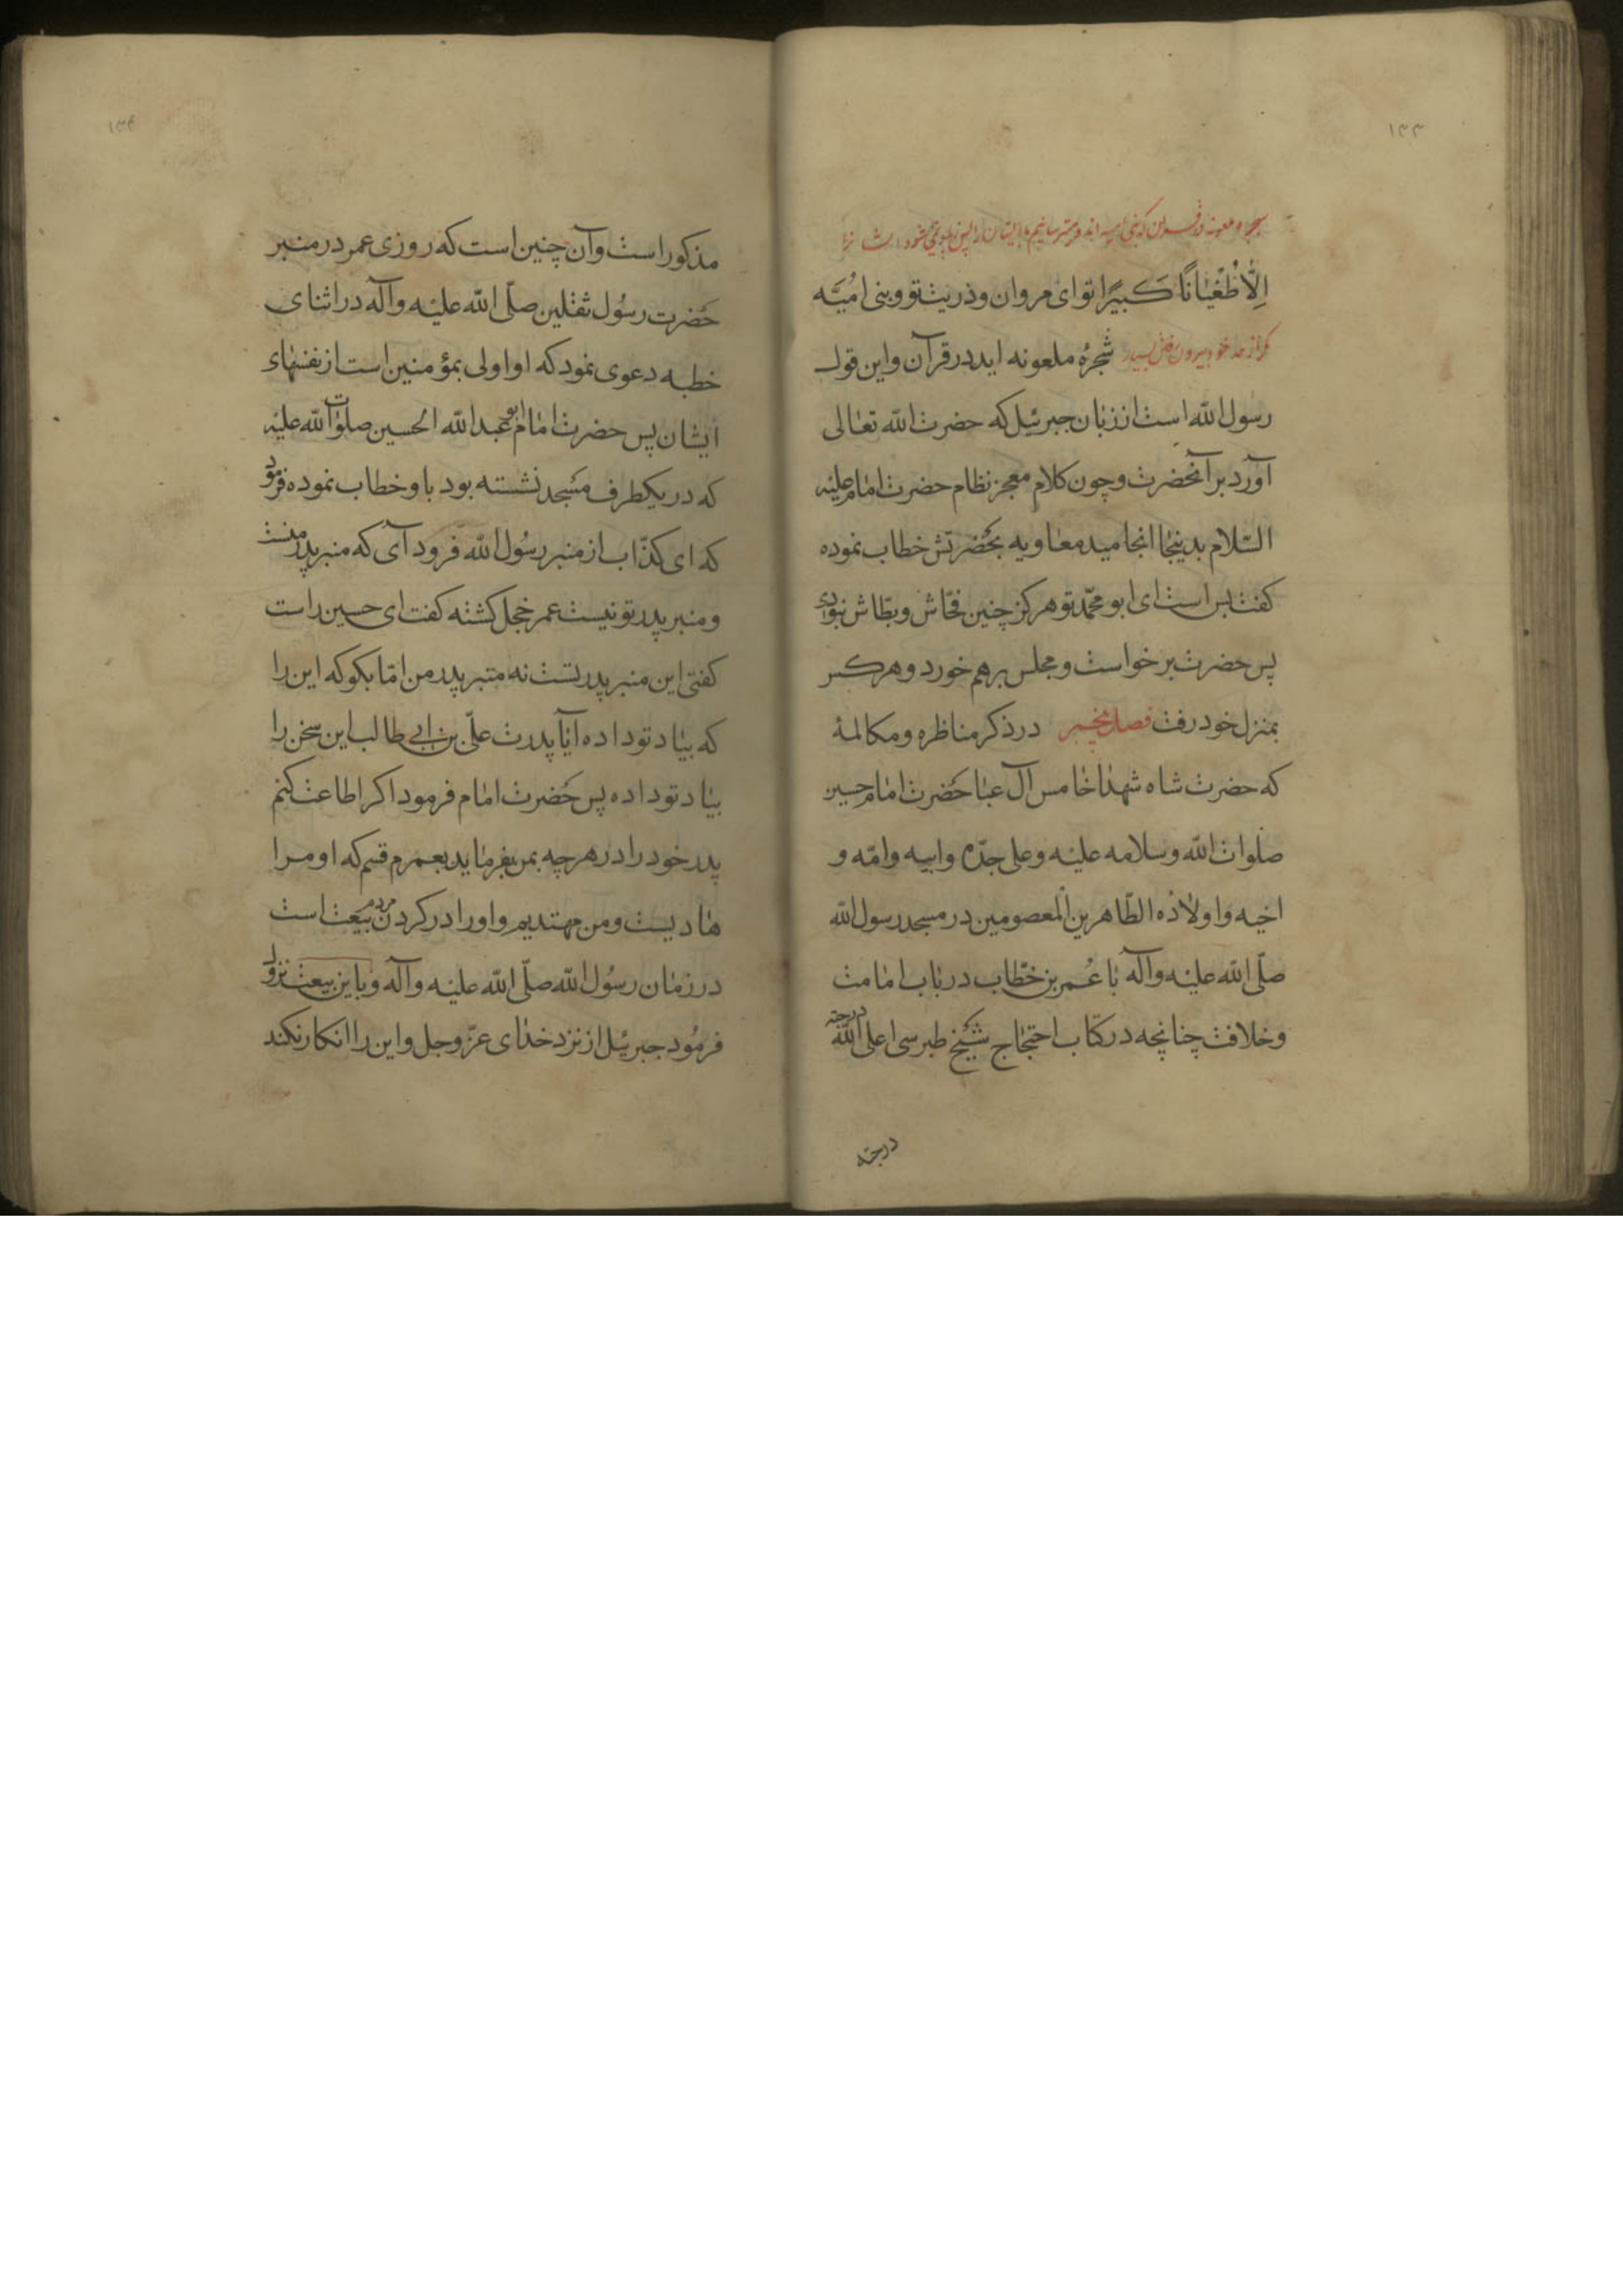 ۱۳۳
إِلَّا طُغْيَانًا كَبِيرًا تو ای مروان و ذریت تو و بنی امُیَّه
مکر از حد خود بیرون رفتن بسیار شجرهٔ ملعونه اید در قرآن و این قول
رسول الله است از زبان جبرئیل که حضرت الله تعالی
آورد بر آنحضرت و چون کلام معجز نظام حضرت امام علیه
السّلام بدینجا انجامید معاویه بحضرتش خطاب نموده
کفت بس است ای ابو محمّد تو هرکز چنین فحّاش و بطّاش نبودی
پس حضرت برخواست و مجلس برهم خورد و هرکس
بمنزل خود رفت فصل پنجم در ذکر مناظره و مکالمهٔ
که حضرت شاه شهدا خامس آل عبا حضرت امام حسین
صلوات الله و سلامه علیه و علی جدّه و ابیه و امّه و
اخیه و اولاده الطّاهرین المعصومین در مسجد رسول الله
صلّی الله علیه و آله با عُمر بن خطّاب در باب امامت
و خلافت چنانچه در کتاب احتجاج شیخ طبرسی اعلی الله درجته
درجته
۱۳۴
مذکور است و آن چنین است که روزی عمر در منبر
حضرت رسُول ثقلین صلّی الله علیه و آله در اثنای
خطبه دعوی نمود که او اولی بمؤمنین است از نفسهای
ایشان پس حضرت امام ابو عبدالله الحسین صلوات الله علیه
که در یکطرف مسجد نشسته بود باو خطاب نموده فرمود
که ای کذّاب از منبر رسُول الله فرود آی که منبر پدر منست
و منبر پدر تو نیست عمر خجل کشته کفت ای حسین راست
کفتی این منبر پدر تست نه منبر پدر من امّا بکو که این را
که بیاد تو داده آیا پدرت علّی بن ابی طالب این سخن را
بیاد تو داده پس حضرت امام فرمود اکر اطاعت کنم
پدر خود را در هر چه بمن بفرماید بعمرم قسم که او مرا
هادیست و من مهتدیم و او را در کردن مردم بیعت است
در زمان رسُول الله صلّی الله علیه و آله و باین بیعت نزول
فرمُود جبرئیل از نزد خدای عزّ و جل و این را انکار نکند